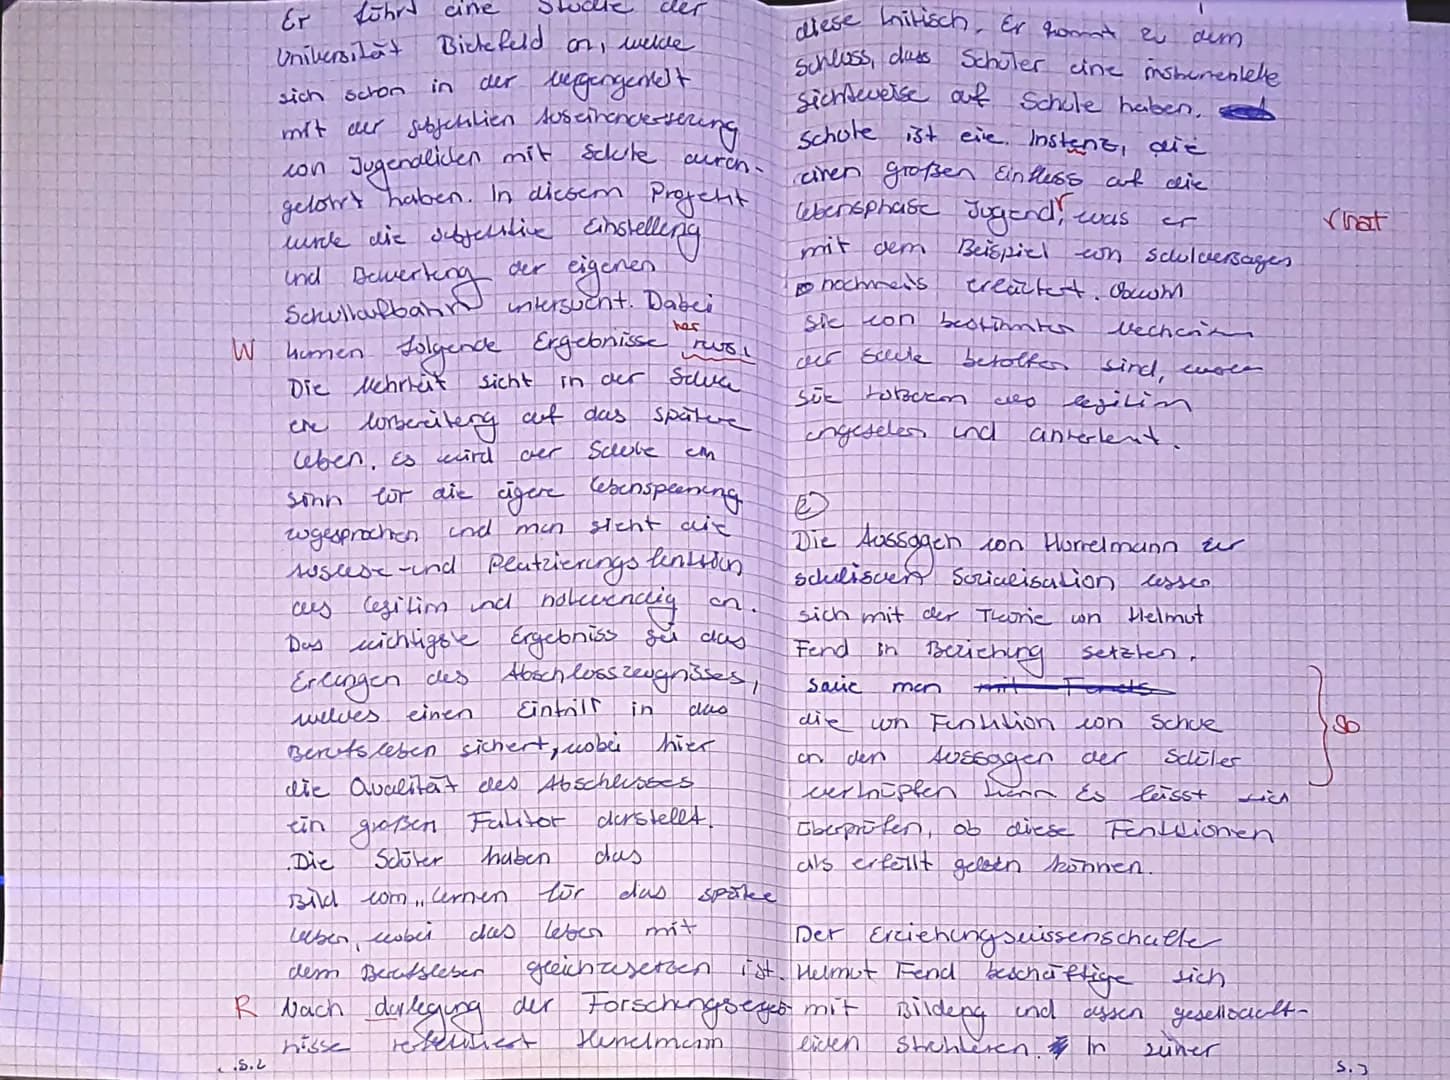 Er führt eine Studie der
Universität Bielefeld an, welche
sich schon in der vergangenheit
mit der subjektiven Auseinandersetzung
von Jugendlichen mit Schule durch-
geführt haben. In diesem Projekt
wurde die subjektive Einstellung
und Bewertung der eigenen
Schullaufbahn untersucht. Dabei
W kamen folgende Ergebnisse her raus.
Die Mehrheit sieht in der Schule
eine Vorbereitung auf das spätere
leben. Es wird der Schule ein
Sinn für die eigene Lebensplanung
zugesprochen und man sieht die
Auslese- und Platzierungsfunktion
als legitim und notwendig an.
Das wichtigste Ergebniss sei das
Erlangen des Abschlusszeugnisses,
welches einen Eintritt in das
Berufsleben sichert, wobei hier
die Qualität des Abschlusses
ein großen Faktor darstellt.
Die Schüler haben das
Bild vom „lernen für das späte
leben, wobei das leben mit
dem Berufsleben gleichzusetzen ist.
R Nach darlegung der Forschungserge
nisse reflektiert Hurrelmann
S.2
diese kritisch. Er kommt zu dem
schluss, dass Schüler eine instrumentelle
Sichtweise auf Schule haben.
Schule ist eine Instanz, die
einen großen Einfluss auf die
lebensphase Jugend, was er √hat
mit dem Beispiel von schulversagen
nochmals erläutert. Obwohl
sie von bestimmten Mechanism
der Schule betroffen sind, werden
sie trotzdem als legitim
angesehen und anerkannt.
②
Die Aussagen von Hurrelmann zur
schulischen Sozialisation lassen
sich mit der Theorie von Helmut
Fend in Beziehung setzten.
Sowie man
die von Funktion von Schule
an den Aussagen der Schüler SB
verknüpfen kann Es lässt sich
überprüfen, ob diese Funktionen
als erfüllt gelten können.
Der Erziehungswissenschaftler
Helmut Fend beschäftige sich
mit Bildung und dessen gesellschaft-
lichen Strukturen. In seiner
S.3